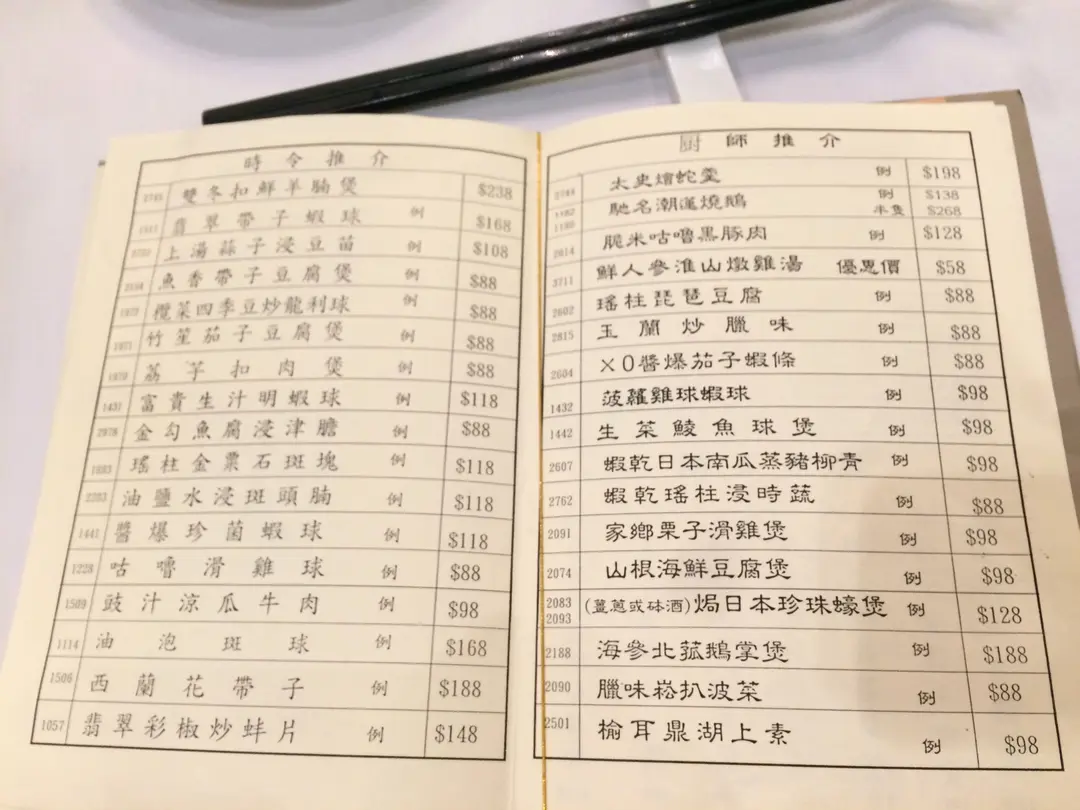 時令推介
雙冬扣鮮羊腩煲 $238
翡翠帶子蝦球 例 $168
上湯蒜子浸豆苗 $108
魚香帶子豆腐煲 例 $88
欖菜四季豆炒龍利球 例 $88
竹笙茄子豆腐煲 例 $88
荔芋扣肉煲 例 $88
1431 富貴生汁明蝦球 例 $118
2978 金勾魚腐浸津膽 例 $88
瑤柱金粟石斑塊 例 $118
2203 油鹽水浸斑頭腩 例 $118
1441 醬爆珍菌蝦球 例 $118
1228 咕嚕滑雞球 例 $88
1509 豉汁涼瓜牛肉 例 $98
1114 油泡斑球 例 $168
1506 西蘭花帶子 例 $188
1057 翡翠彩椒炒蚌片 例 $148
厨師推介
2744 太史燴蛇羹 例 $198
馳名潮蓮燒鵝 例 $138
半隻 $268
2614 脆米咕嚕黑豚肉 例 $128
3711 鮮人參淮山燉雞湯 優惠價 $58
2602 瑤柱琵琶豆腐 例 $88
2815 玉蘭炒臘味 例 $88
2604 XO醬爆茄子蝦條 例 $88
1432 菠蘿雞球蝦球 例 $98
1442 生菜鯪魚球煲 例 $98
2607 蝦乾日本南瓜蒸豬柳青 例 $98
2762 蝦乾瑤柱浸時蔬 例 $88
2091 家鄉栗子滑雞煲 例 $98
2074 山根海鮮豆腐煲 例 $98
2083 2093 (薑蔥或砵酒)焗日本珍珠蠔煲 例 $128
2188 海參北菰鵝掌煲 例 $188
2090 臘味崧扒波菜 例 $88
2501 榆耳鼎湖上素 例 $98